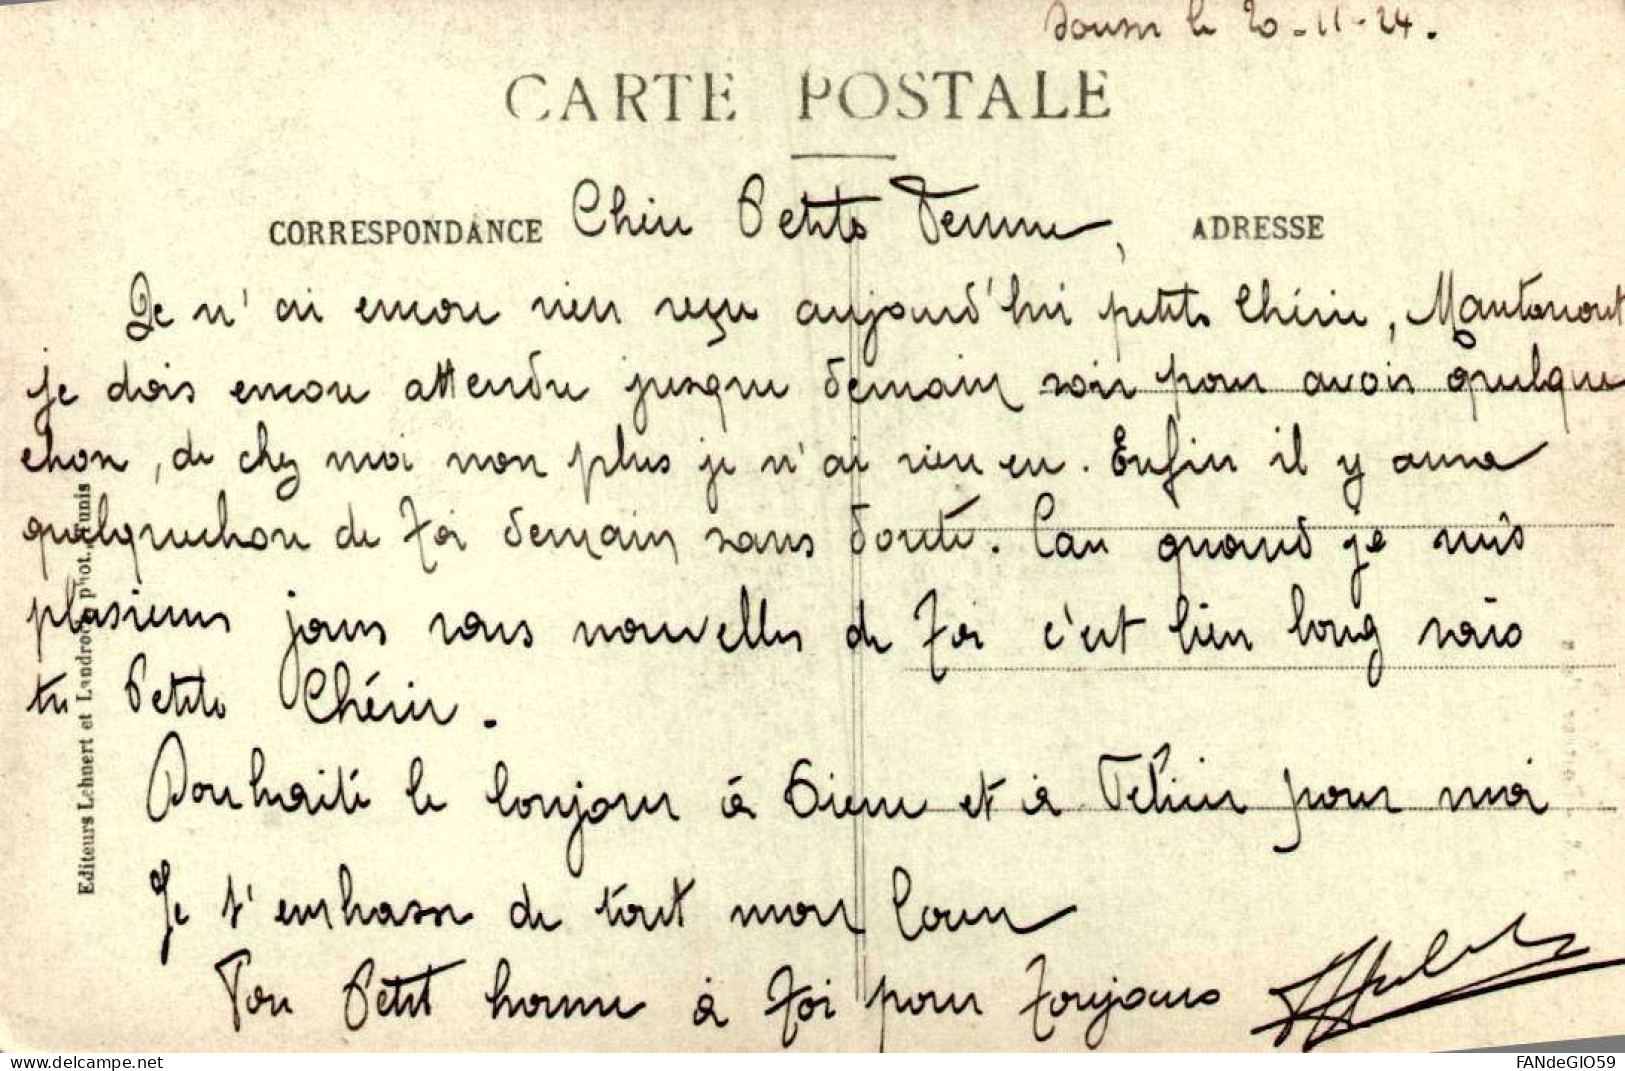 Sousse le 20-11-24.
CARTE POSTALE
CORRESPONDANCE Chère Petite Femme, ADRESSE
Je n'ai encore rien reçu aujourd'hui petite Chérie, Maintenant
je dois encore attendre jusque demain soir pour avoir quelque
chose, de chez moi non plus je n'ai rien eu. Enfin il y aura
quelquechose de Toi demain sans doute. Car quand je suis
plusieurs jours sans nouvelles de Toi c'est bien long sais
tu Petite Chérie.
Souhaite le bonjour à et à pour moi
Je t'embrasse de tout mon Coeur
Ton Petit homme à Toi pour Toujours
Editeurs Lehnert et Landrock phot. Tunis
www.delcampe.net
FANdeGIO59